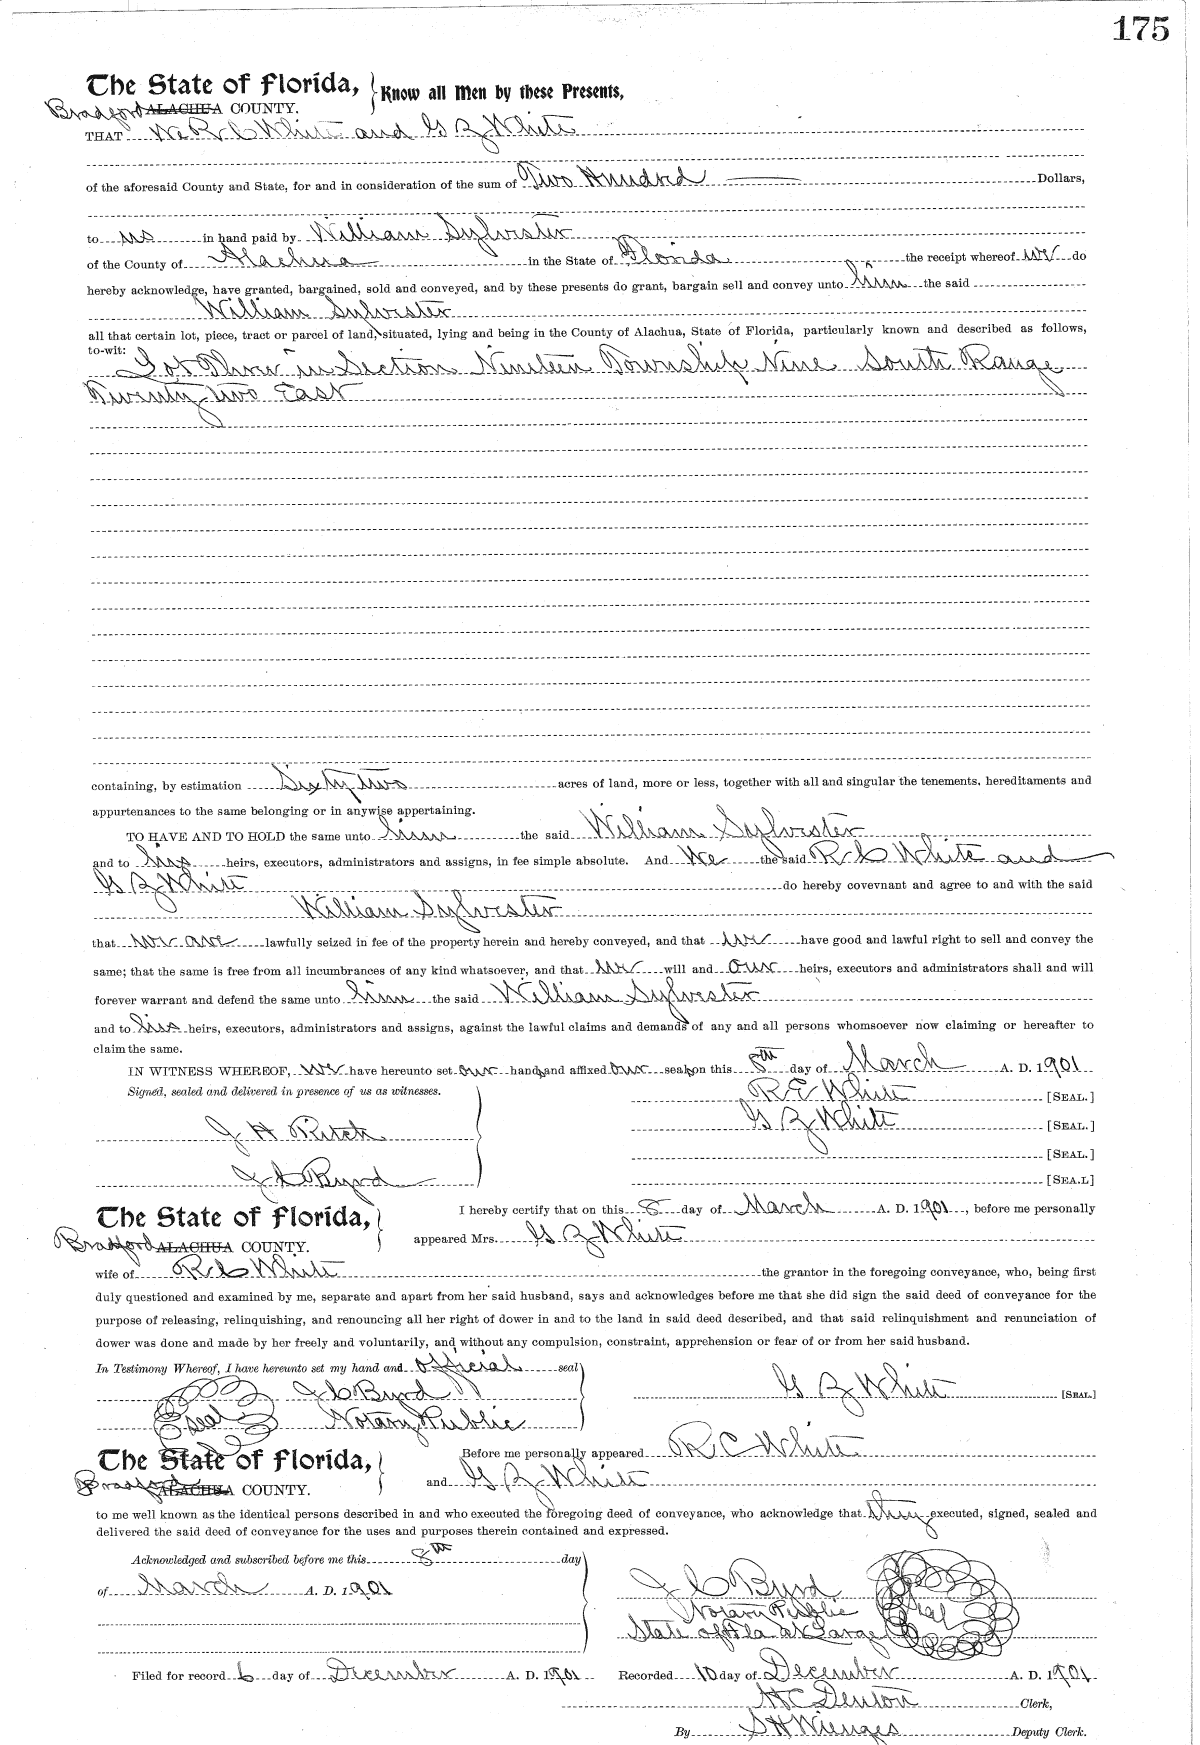 175
The State of Florida, Know all Men by these Presents,
Bradford ALACHUA COUNTY.
THAT We R C White and G Z White
of the aforesaid County and State, for and in consideration of the sum of Two Hundred Dollars,
to us in hand paid by William Sylvester
of the County of Alachua in the State of Florida the receipt whereof we do
hereby acknowledge, have granted, bargained, sold and conveyed, and by these presents do grant, bargain sell and convey unto him the said
William Sylvester
all that certain lot, piece, tract or parcel of land, situated, lying and being in the County of Alachua, State of Florida, particularly known and described as follows,
to-wit:
Lot Three in Section Nineteen Township Nine South Range
Twenty two East
containing, by estimation Sixty two acres of land, more or less, together with all and singular the tenements, hereditaments and
appurtenances to the same belonging or in anywise appertaining.
TO HAVE AND TO HOLD the same unto him the said William Sylvester
and to his heirs, executors, administrators and assigns, in fee simple absolute. And We the said R C White and
G Z White do hereby covevnant and agree to and with the said
William Sylvester
that we are lawfully seized in fee of the property herein and hereby conveyed, and that we have good and lawful right to sell and convey the
same; that the same is free from all incumbrances of any kind whatsoever, and that we will and our heirs, executors and administrators shall and will
forever warrant and defend the same unto him the said William Sylvester
and to his heirs, executors, administrators and assigns, against the lawful claims and demands of any and all persons whomsoever now claiming or hereafter to
claim the same.
IN WITNESS WHEREOF, we have hereunto set our hands and affixed our seals on this 8th day of March A. D. 1901
Signed, sealed and delivered in presence of us as witnesses.
R E White [SEAL.]
G Z White [SEAL.]
J H Ritch
[SEAL.]
J C Byrd [SEA.L]
The State of Florida, I hereby certify that on this 8 day of March A. D. 1901, before me personally
Bradford ALACHUA COUNTY. appeared Mrs. G Z White
wife of R C White the grantor in the foregoing conveyance, who, being first
duly questioned and examined by me, separate and apart from her said husband, says and acknowledges before me that she did sign the said deed of conveyance for the
purpose of releasing, relinquishing, and renouncing all her right of dower in and to the land in said deed described, and that said relinquishment and renunciation of
dower was done and made by her freely and voluntarily, and without any compulsion, constraint, apprehension or fear of or from her said husband.
In Testimony Whereof, I have hereunto set my hand and official seal
J C Byrd G Z White [SEAL.]
seal Notary Public
The State of Florida, Before me personally appeared R C White
Bradford ALACHUA COUNTY. and G Z White
to me well known as the identical persons described in and who executed the foregoing deed of conveyance, who acknowledge that they executed, signed, sealed and
delivered the said deed of conveyance for the uses and purposes therein contained and expressed.
Acknowledged and subscribed before me this 8th day
of March A. D. 1901
J C Byrd
Notary Public seal
State of Fla at Large
Filed for record 6 day of December A. D. 1901 Recorded 10 day of December A. D. 1901
H C Denton Clerk,
By S H Wienges Deputy Clerk.